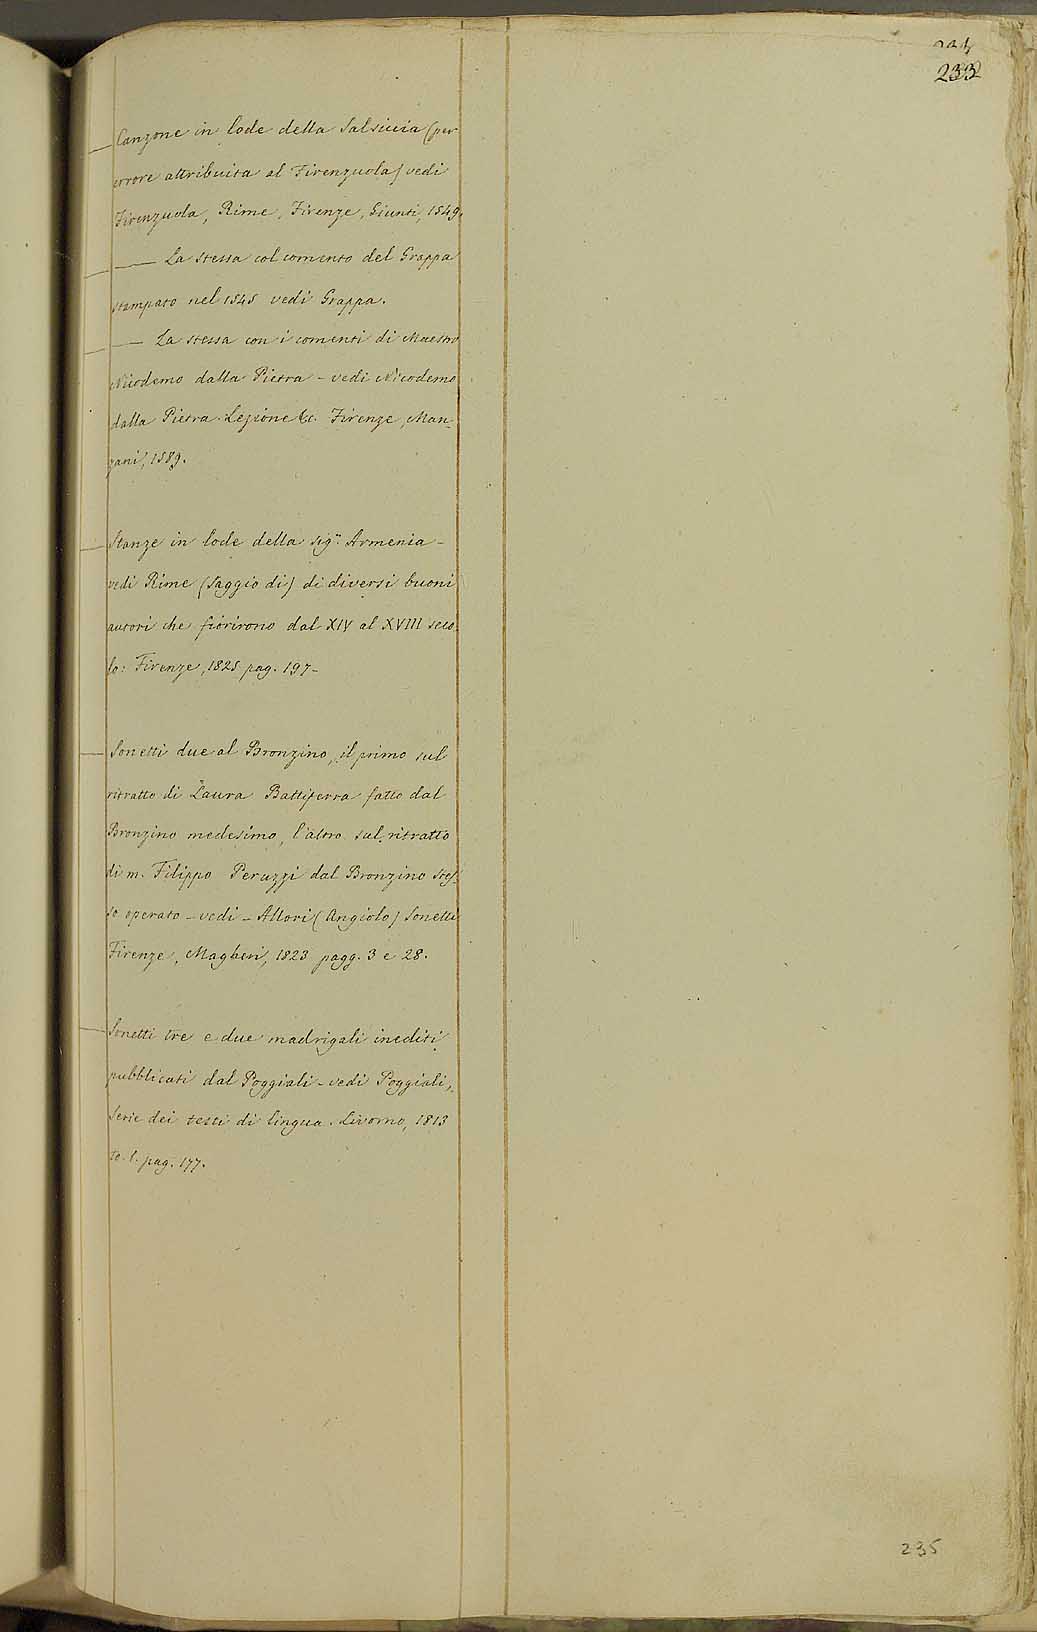 233
Canzone in lode della Salsiccia (per
errore attribuita al Firenzuola) vedi
Firenzuola, Rime, Firenze, Giunti, 1549.
—— La stessa col comento del Grappa
stampato nel 1545 vedi Grappa.
—— La stessa con i comenti di Maestro
Nicodemo dalla Pietra - vedi Nicodemo
dalla Pietra. Lezione &c. Firenze, Man-
zani, 1589.
Stanze in lode della sig.ª Armenia -
vedi Rime (Saggio di) di diversi buoni
autori che fiorirono dal XIV al XVIII seco
lo: Firenze, 1825 pag. 197-
Sonetti due al Bronzino, il primo sul
ritratto di Laura Battiferra fatto dal
Bronzino medesimo, l'altro sul ritratto
di m. Filippo Peruzzi dal Bronzino stes-
so operato - vedi - Allori (Angiolo) Sonetti
Firenze, Magheri, 1823 pagg. 3 e 28.
Sonetti tre e due madrigali inediti
pubblicati dal Poggiali - vedi Poggiali,
Serie dei testi di lingua. Livorno, 1813
to. 1. pag. 177.
235